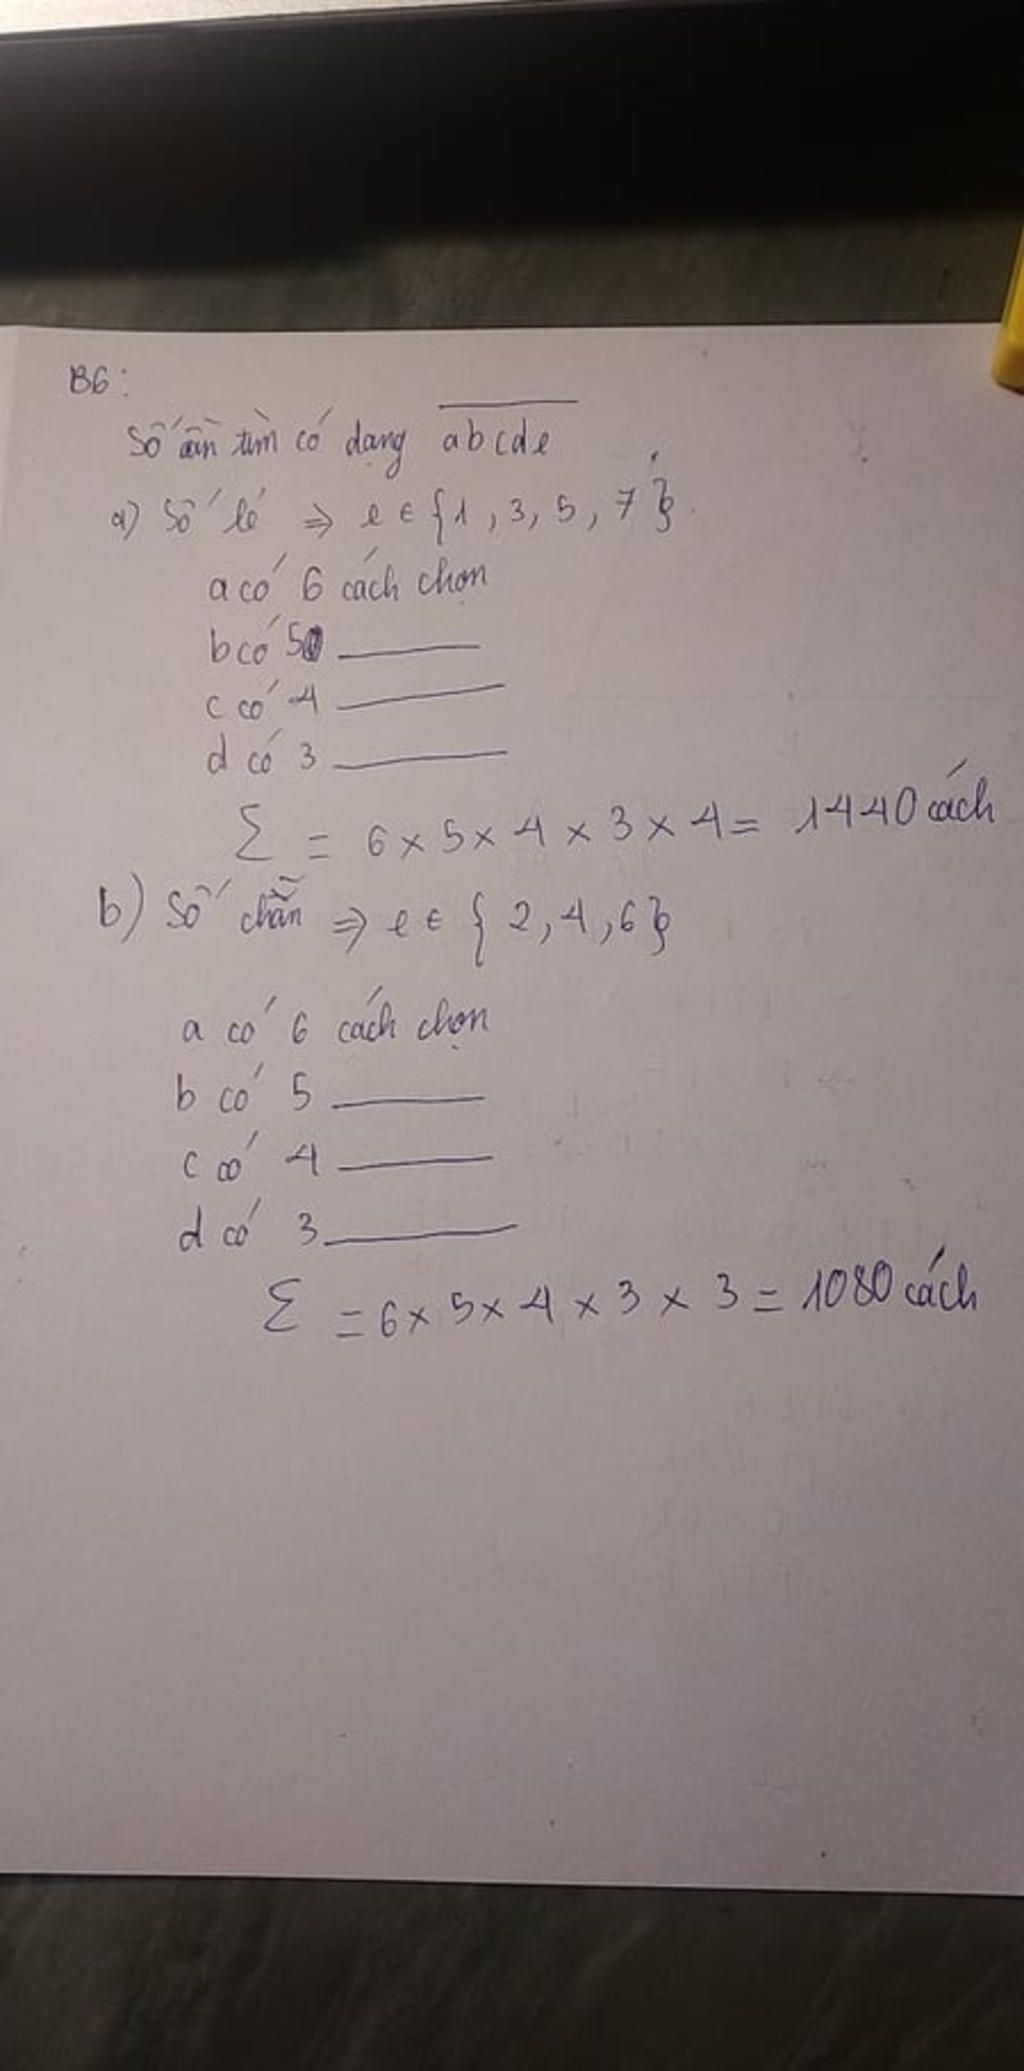 B6:
Số cần tìm có dạng abcde
a) Số lẻ ⇒ e ∈ {1, 3, 5, 7}.
a có 6 cách chọn
b có 5 ———
c có 4 ———
d có 3 ———
Σ = 6 × 5 × 4 × 3 × 4 = 1440 cách
b) Số chẵn ⇒ e ∈ {2, 4, 6}
a có 6 cách chọn
b có 5 ———
c có 4 ———
d có 3 ———
Σ = 6 × 5 × 4 × 3 × 3 = 1080 cách